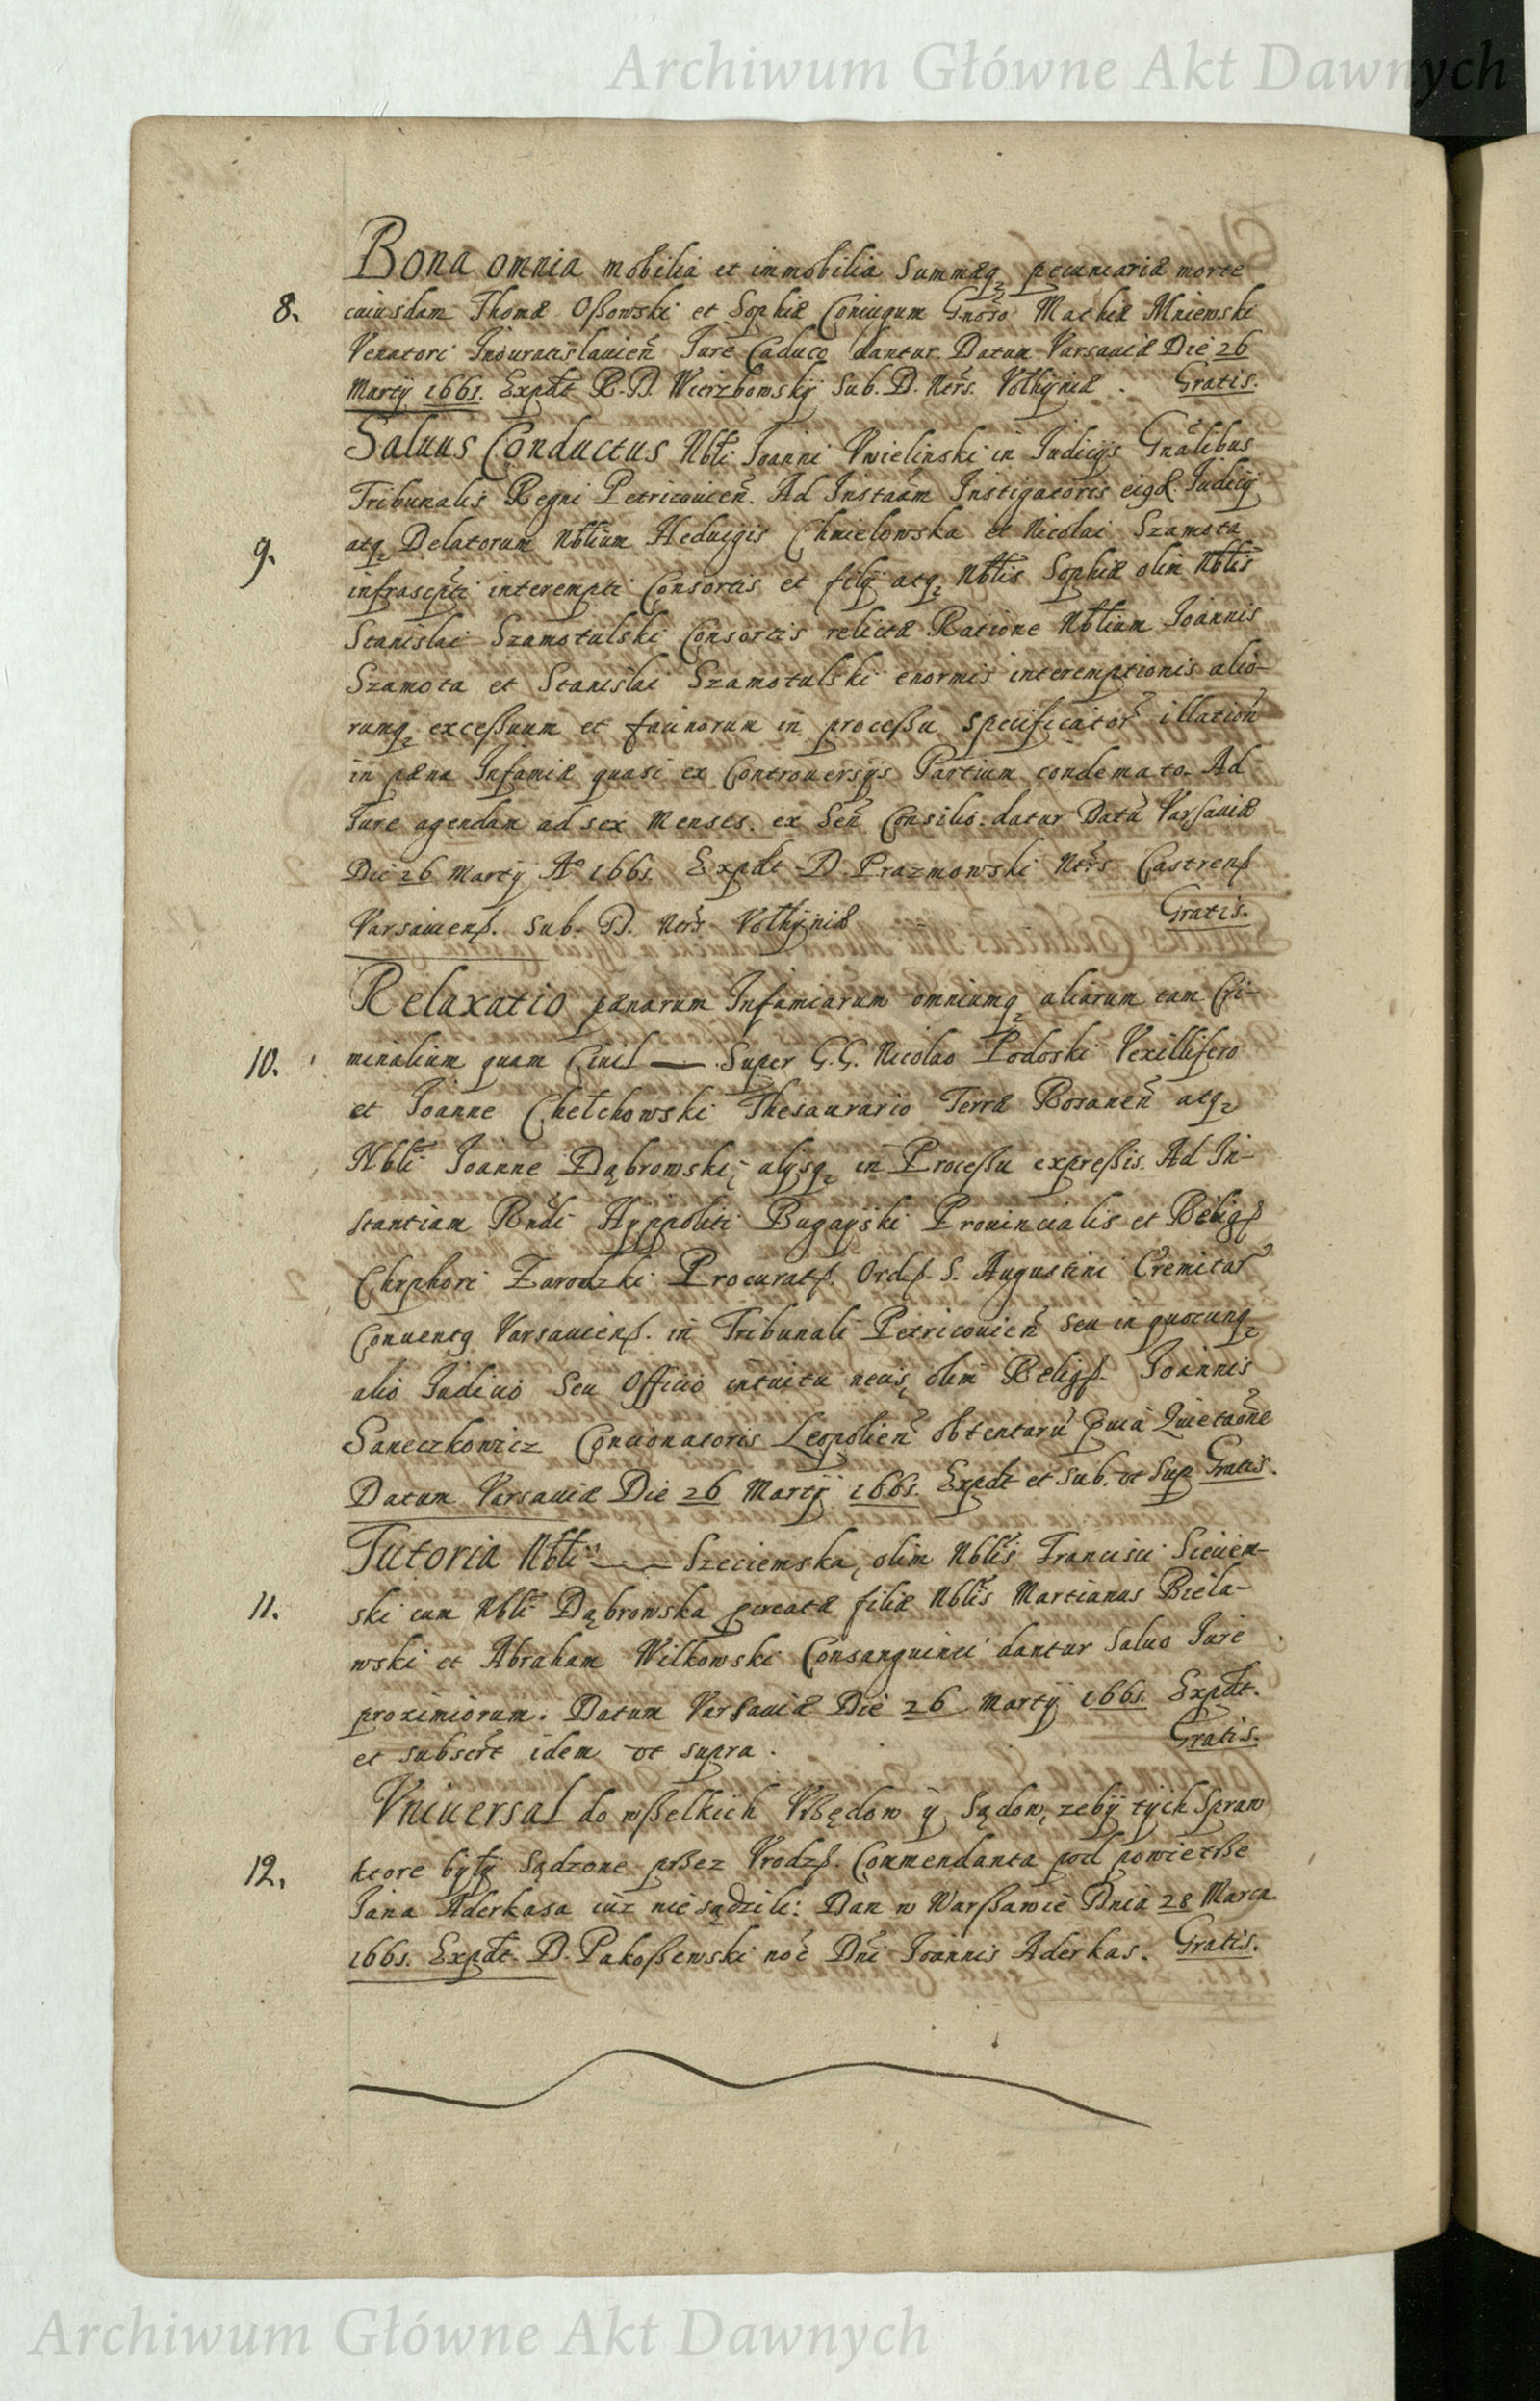 Archiwum Główne Akt Dawnych
Bona omnia mobilia et immobilia Summæq₃ pecuniariæ morte
8. cuiusdam Thomæ Oßowski et Sophiæ Coniugum Gnoso Mathiæ Mniewski
Venatori Inouratislauien̄ Jure Caduco dantur Datum Varsauiæ Die 26
Martij 1661. Expdt R. D. Wierzbowskij Sub. D. Ners. Vołhijniæ. Gratis.
Saluus Conductus Nbli Joanni Kmielinski in Judicijs Gnālibus
Tribunalis Regni Petricouien̄. Ad Instaām Instigatoris eig8. Judicij
9. atq₃ Delatorum Nblium Heduigis Chmielowska et Nicolai Szamota
infrascpti interempti Consortis et filij atq₃ Nblis Sophiæ olim Nblis
Stanislai Szamotulski Consortis relictæ Ratione Nblium Joannis
Szamota et Stanislai Szamotulski enormis interemptionis alio-
rumq₃ exceßuum et facinorum in proceßu specificator̄ illation̄
in pæna Infamiæ quasi ex Controuersijs Partium condemato. Ad
Jure agendum ad sex Menses. ex Sen̄ Consilio. datur Datū Varsauiæ
Die 26 Martij Aº 1661. Expdt D. Prazmowski Ntrs Castrenß
Varsauienß. Sub. D. Ners Vołhijniæ Gratis.
Relaxatio pænarum Infamiarum omniumq₃ aliarum tam Cri-
10. minalium quam Ciuil — . Super G. G. Nicolao Podoski Vexillifero
et Joanne Chełchowski Thesaurario Terræ Rosanen̄ atq₃
Nbli Joanne Dąbrowski, alijsq₃ in Proceßu expreßis. Ad In-
stantiam Rndi Hyppoliti Bugayski Prouincialis et Religß
Chrphori Zarodzki Procuratß. Ordß. S. Augustini Eremitar̄
Conuentg Varsauienß. in Tribunali Petricouien̄ seu in quocunq₃
alio Judicio Seu Officio intuitu necis, olim Religß Joannis
Saneczkowicz Concionatoris Leopolien̄ obtentarū Quietaōne
Datum Varsauiæ Die 26 Martij 1661. Expdt et Sub. vt Sup Gratis.
Tutoria Nbli — Szeciemska, olim Nblis Francisci Sieciem-
11. ski cum Nbli Dąbrowska pcreatæ filiæ Nblis Martianus Biela-
wski et Abraham Wilkowski Consanguinei dantur Saluo Jure
proximiorum. Datum Varsauiæ Die 26 Martij 1661. Expdt.
et subscrt idem vt supra. Gratis.
Vniuersal do wßelkich Vrzędow ÿ Sądow, zebÿ tÿch Spraw
12. ktore bÿłÿ Sądzone przez Vrodzß. Commendanta pod powietrze
Jana Aderkasa iuz nie sądzili: Dan w Warßawie Dnia 28 Marca
1661. Expdt. D. Pakoßewski noē Dni Joannis Aderkas. Gratis.
Archiwum Główne Akt Dawnych